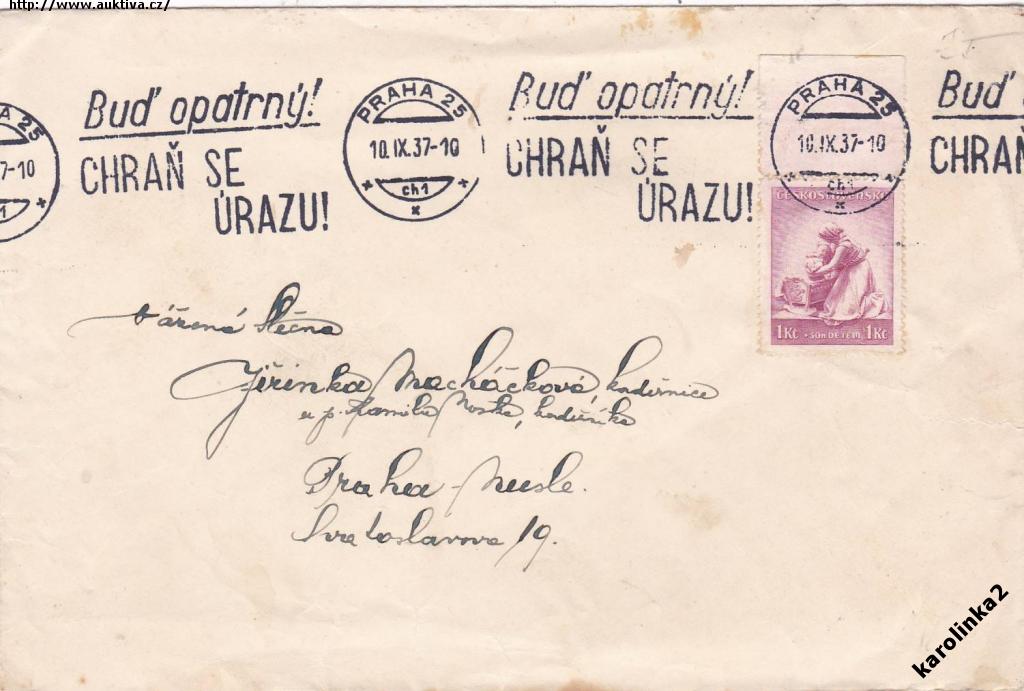 http://www.auktiva.cz/
Buď opatrný!
CHRAŇ SE
ÚRAZU!
PRAHA 25
10.IX.37-10
ch1
Buď opatrný!
CHRAŇ SE
ÚRAZU!
PRAHA 25
10.IX.37-10
ch1
Buď
CHRAŇ
AHA 25
7-10
1
ČESKOSLOVENSKO
1Kč +50h DĚTEM 1Kč
Vážená Slečna
Jiřinka Macháčková, kadeřnice
u p. Kamila Noska, kadeřníka
Praha-Nusle.
Svatoslavova 19.
karolinka2